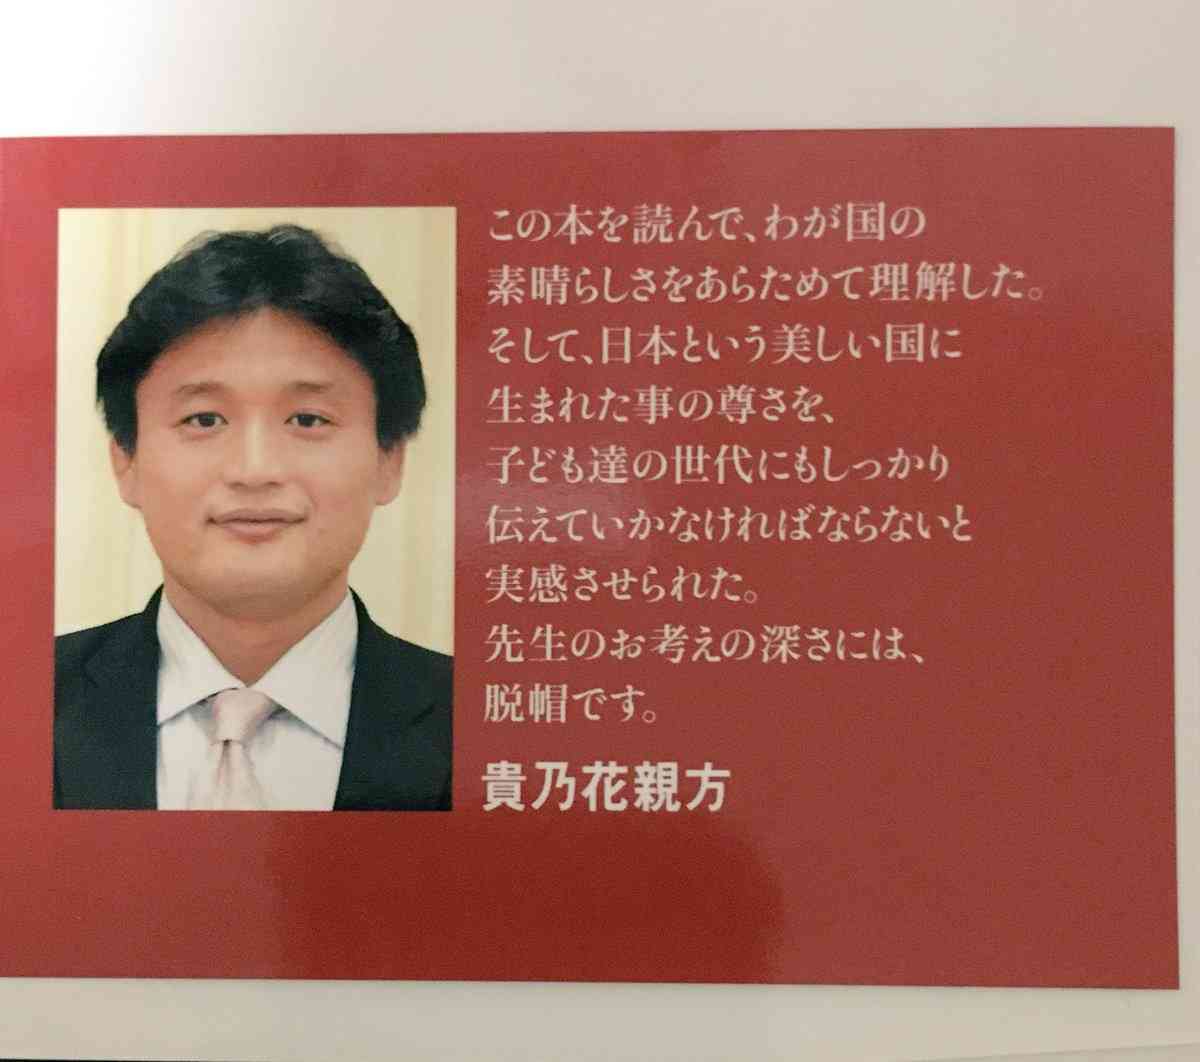 この本を読んで、わが国の
素晴らしさをあらためて理解した。
そして、日本という美しい国に
生まれた事の尊さを、
子ども達の世代にもしっかり
伝えていかなければならないと
実感させられた。
先生のお考えの深さには、
脱帽です。
貴乃花親方